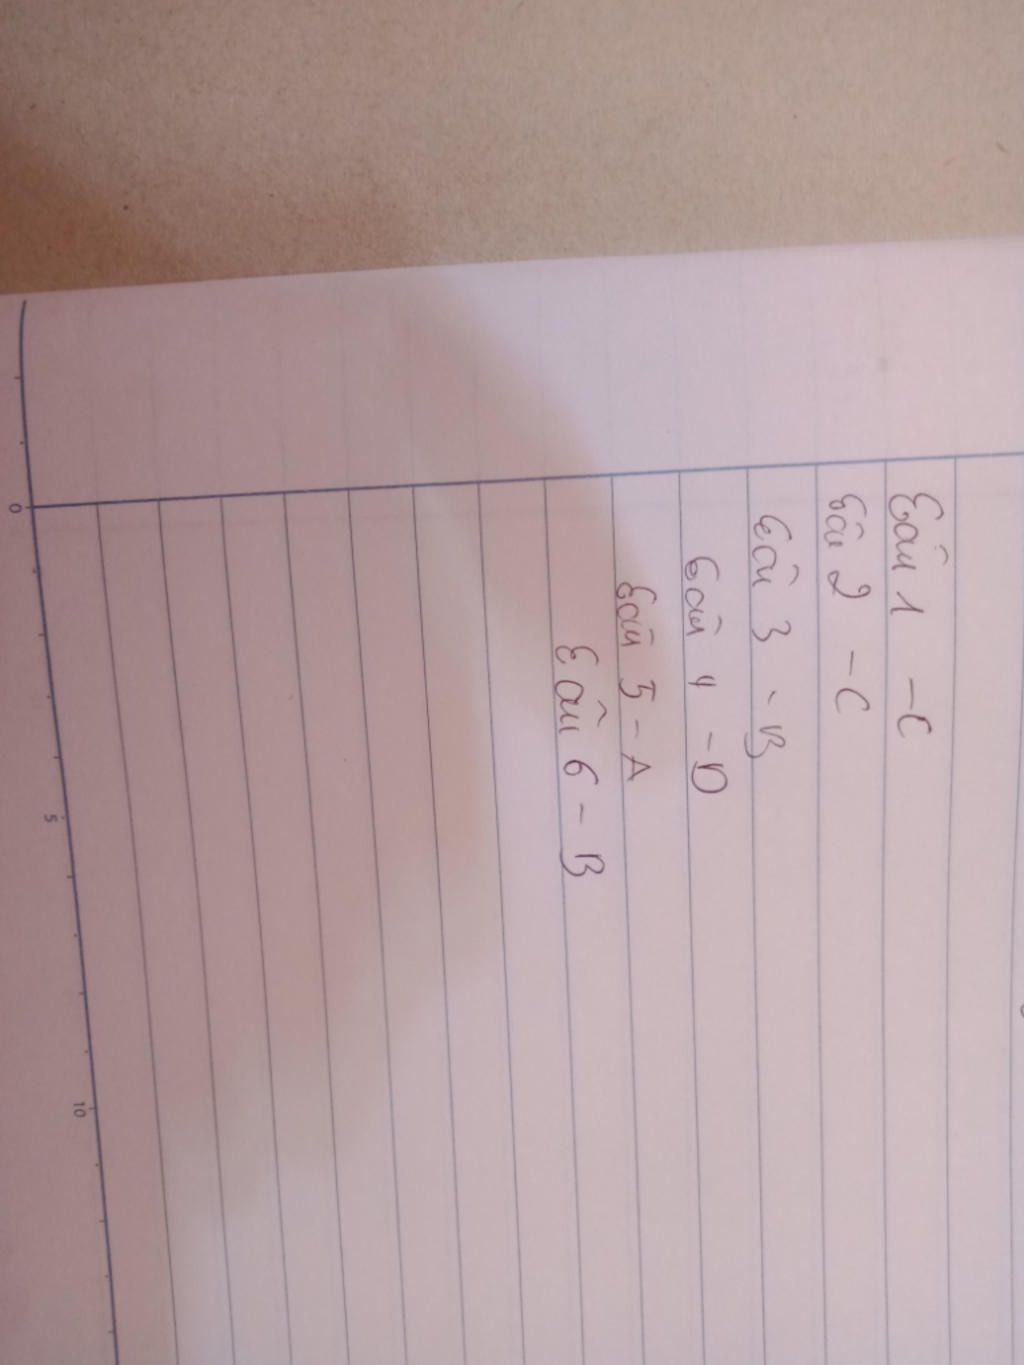 Câu 1 - C
Câu 2 - C
Câu 3 - B
Câu 4 - D
Câu 5 - A
Câu 6 - B
0 5 10